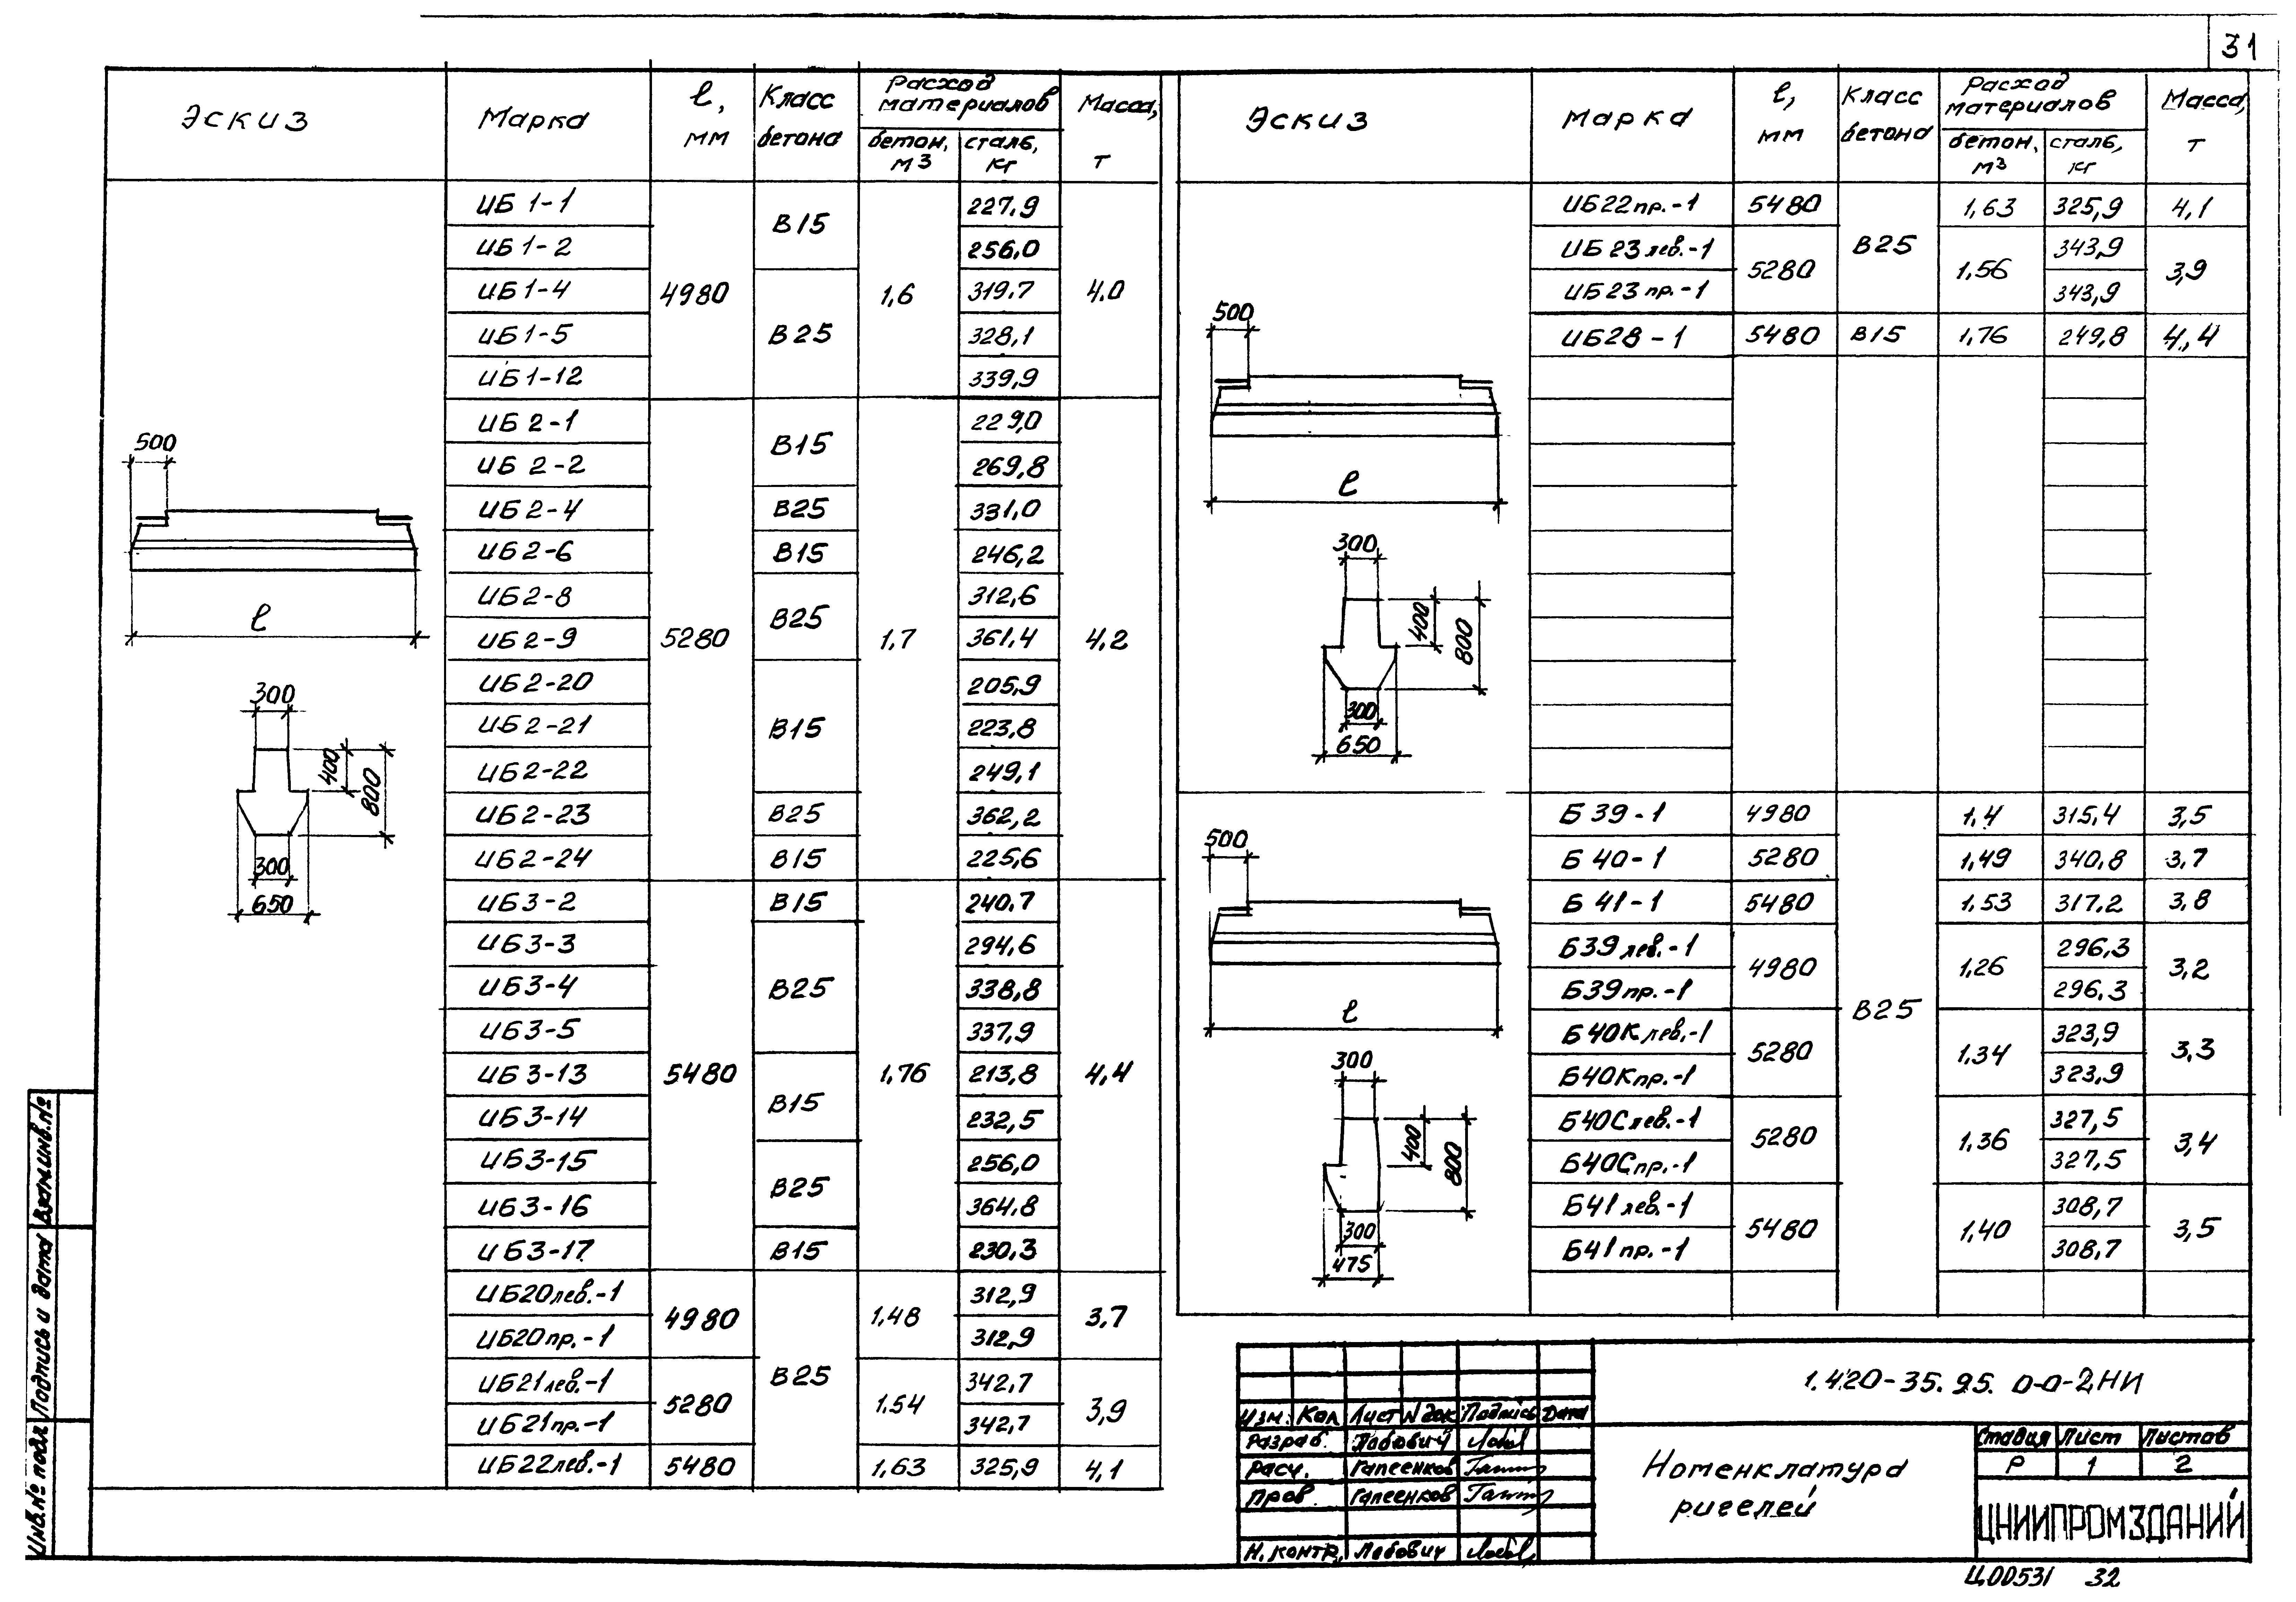 31
Эскиз Марка ℓ, мм Класс бетона Расход материалов бетон, м3 сталь, кг Масса, т
ИБ 1-1 4980 В15 1,6 227,9 4.0
ИБ 1-2 256,0
ИБ 1-4 В25 319.7
ИБ 1-5 328,1
ИБ 1-12 339,9
ИБ 2-1 5280 В15 1,7 229,0 4,2
ИБ 2-2 269,8
ИБ 2-4 В25 331,0
ИБ 2-6 В15 246,2
ИБ 2-8 В25 312,6
ИБ 2-9 361,4
ИБ 2-20 В15 205,9
ИБ 2-21 223,8
ИБ 2-22 249,1
ИБ 2-23 В25 362,2
ИБ 2-24 В15 225,6
ИБ 3-2 5480 В15 1,76 240,7 4,4
ИБ 3-3 В25 294,6
ИБ 3-4 338,8
ИБ 3-5 337,9
ИБ 3-13 В15 213,8
ИБ 3-14 232,5
ИБ 3-15 В25 256,0
ИБ 3-16 364,8
ИБ 3-17 В15 230,3
ИБ20лев.-1 4980 В25 1,48 312,9 3,7
ИБ20пр.-1 312,9
ИБ21лев.-1 5280 1.54 342,7 3,9
ИБ21пр.-1 342,7
ИБ22лев.-1 5480 1,63 325,9 4,1
500
ℓ
300
400
800
300
650
Эскиз Марка ℓ, мм Класс бетона Расход материалов бетон, м3 сталь, кг Масса, т
ИБ22пр.-1 5480 В25 1,63 325,9 4,1
ИБ23лев.-1 5280 1,56 343,9 3,9
ИБ23пр.-1 343,9
ИБ28-1 5480 В15 1,76 249,8 4,4
500
ℓ
300
400
800
300
650
Б 39-1 4980 В25 1,4 315,4 3,5
Б 40-1 5280 1,49 340,8 3,7
Б 41-1 5480 1.53 317,2 3,8
Б39лев.-1 4980 1,26 296,3 3,2
Б39пр.-1 296,3
Б40Клев.-1 5280 1.34 323,9 3,3
Б40Кпр.-1 323,9
Б40Слев.-1 5280 1.36 327,5 3,4
Б40Спр.-1 327,5
Б41лев.-1 5480 1,40 308,7 3,5
Б41пр.-1 308,7
500
ℓ
300
400
800
300
475
Взам.инв.№
Подпись и дата
Инв.№ подл
1.420-35.95. 0-0-2НИ
Изм. Кол Лист N док Подпись Дата
Разраб. Лобович
Расч. Гапеенков
Пров. Гапеенков
Н.контр. Лобович
Номенклатура
ригелей
Стадия Лист Листов
Р 1 2
ЦНИИПРОМЗДАНИЙ
Ц.00531 32